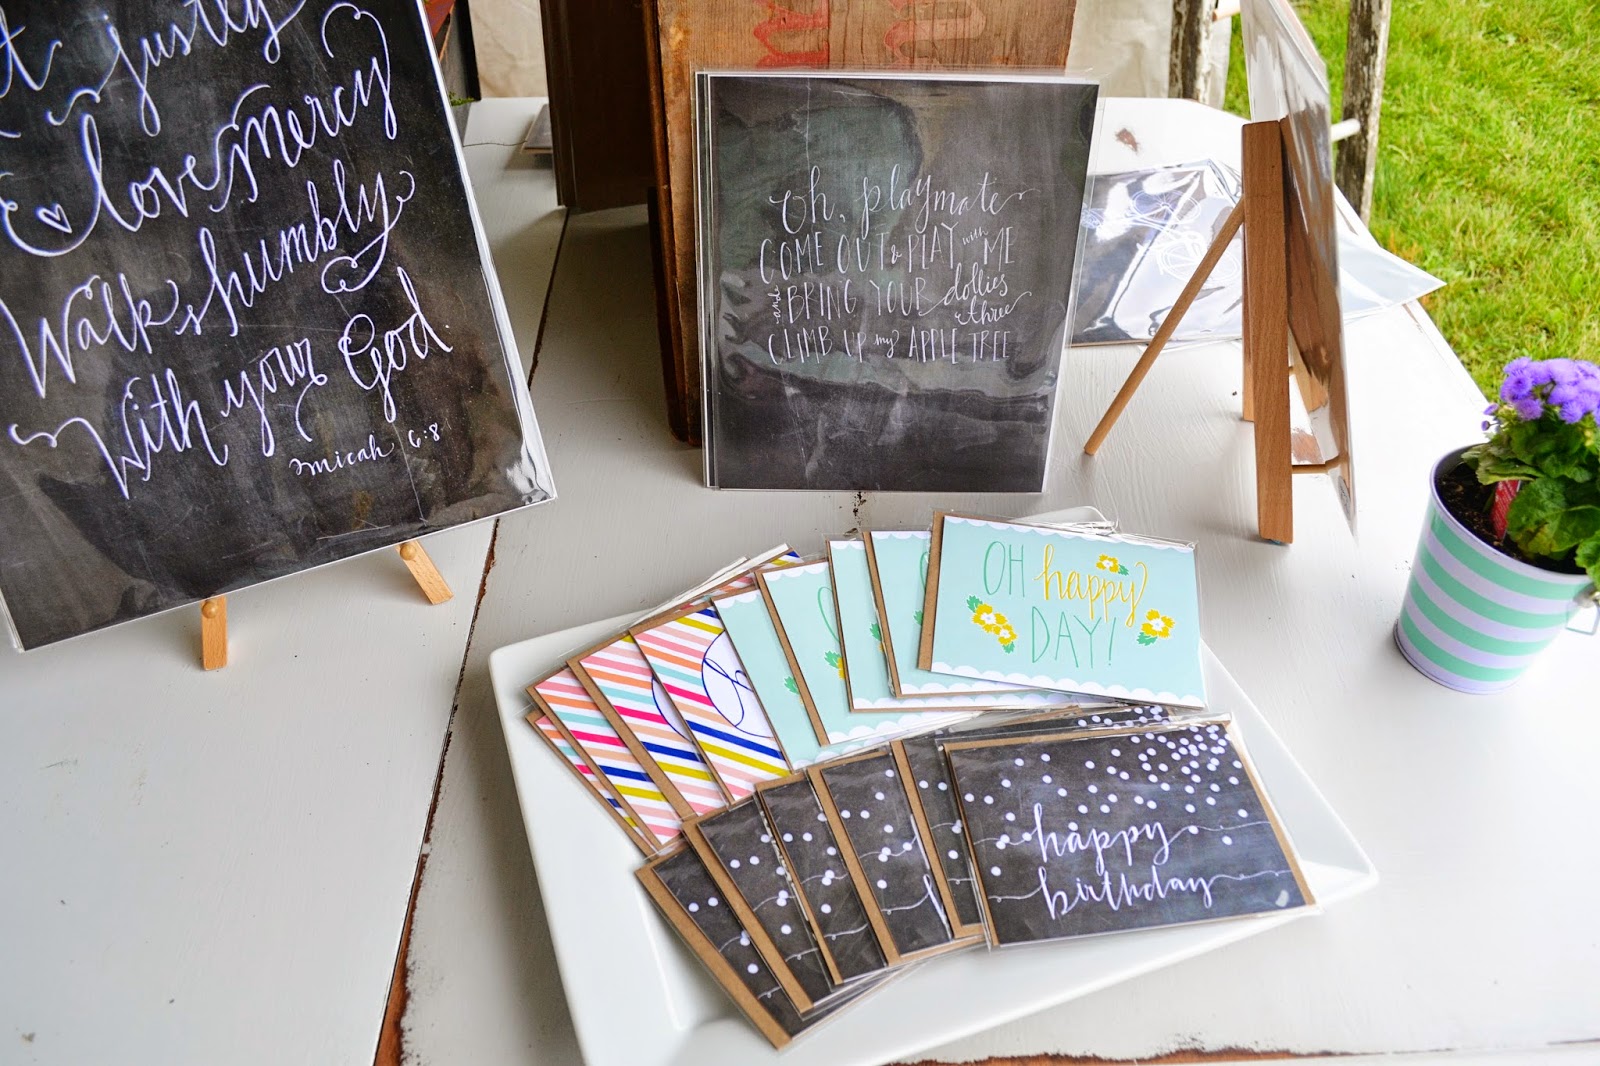 justly
love mercy
walk humbly
with your God.
micah 6:8
oh, playmate
COME OUT & PLAY with ME
and BRING YOUR dollies three
CLIMB UP my APPLE TREE
OH happy
DAY!
happy
birthday